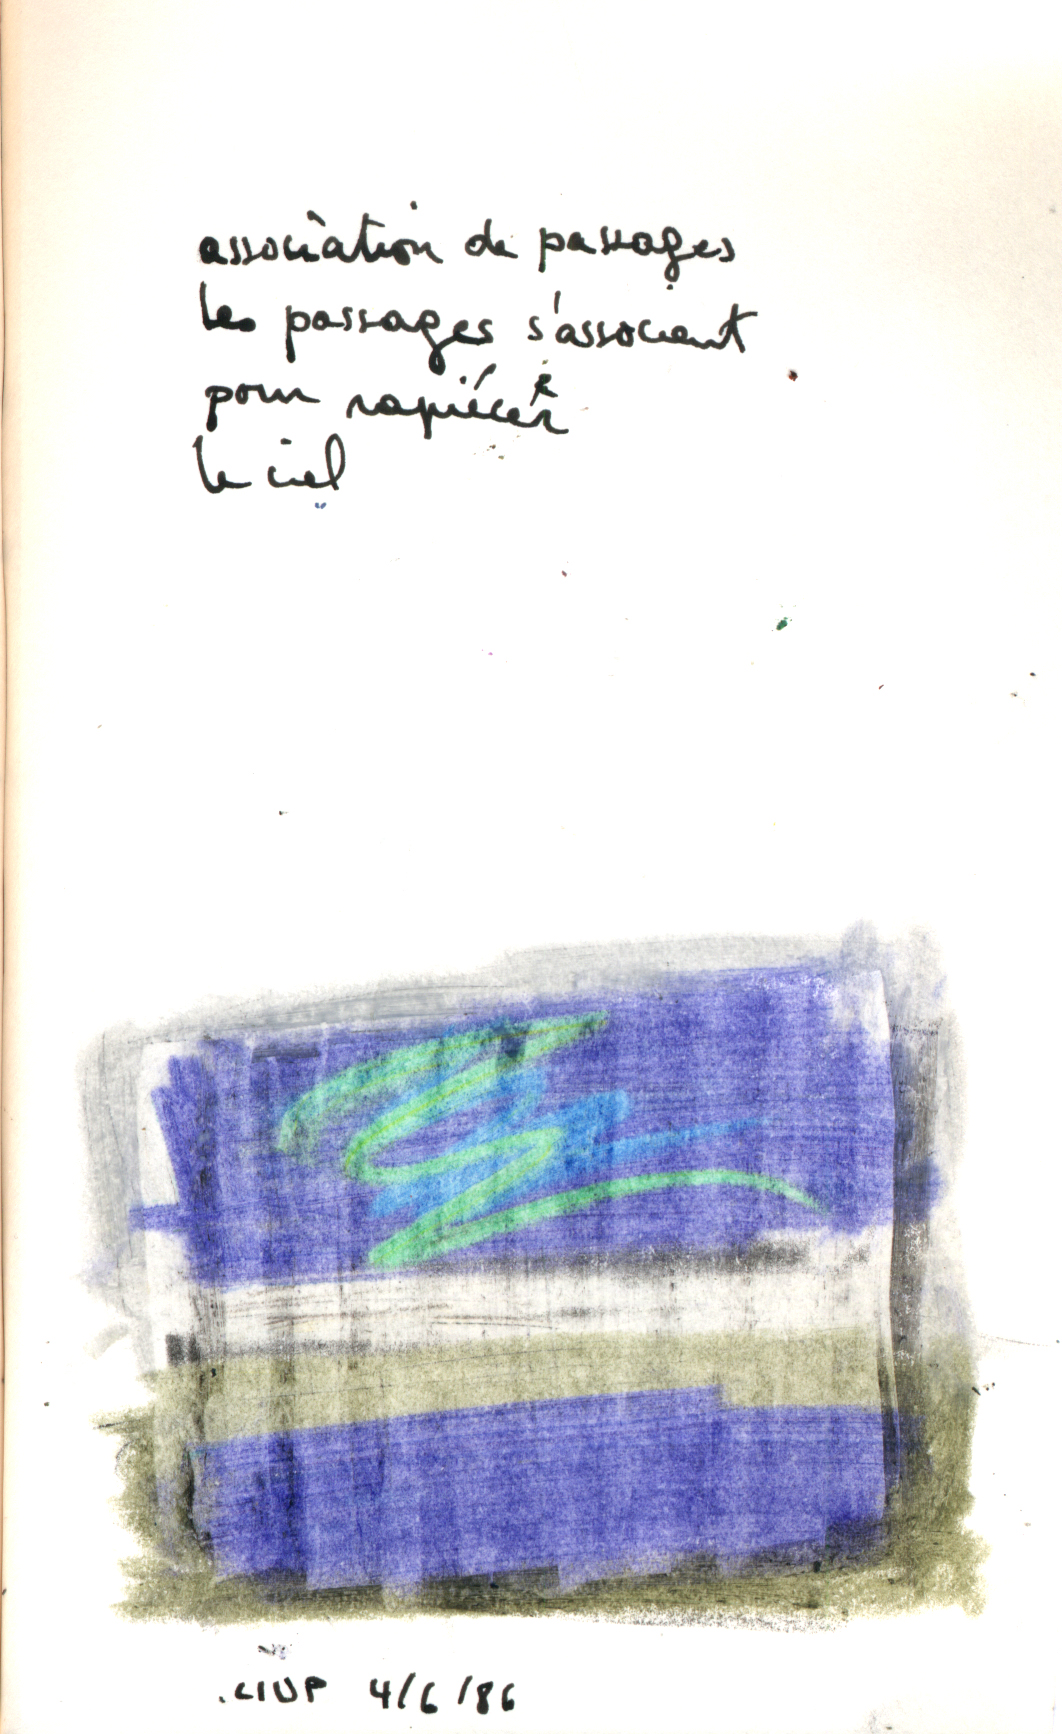 association de passages
les passages s'associent
pour rapiécer
le ciel
.CIUP 4/6/86